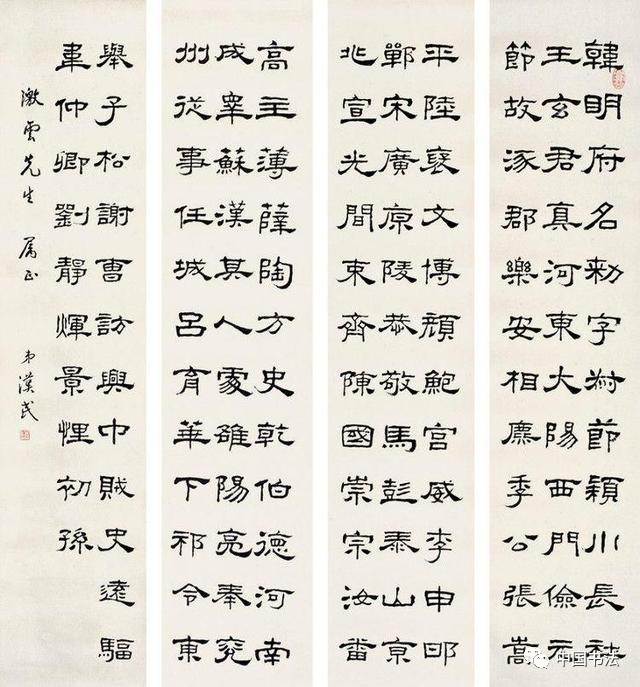 韓明府名勑字叔節穎川長社
王玄君真河東大陽西門儉元
節故涿郡樂安相麃季公張嵩
平陸襃文博頏鮑宮威李申
鄲宋廣原陵恭敬馬彭泰山京
兆宣光間束齊陳國崇宗汝番
高主薄薛陶方史乾伯德河南
成睪蘇漢其人處雒陽亮奉兖
州從事任城呂育華下邳令東
舉子松謝曹訪興中賊史遠驅
韋仲卿劉靜煇景悝初孫
澂雲先生 屬正 弟漢民
中国书法